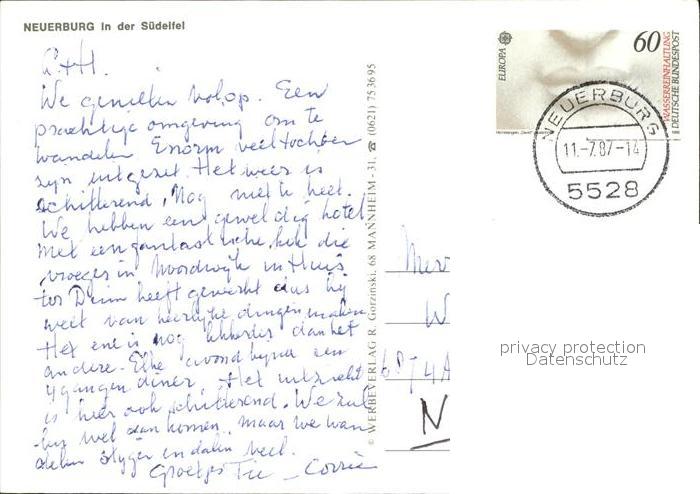 NEUERBURG in der Südeifel
L+H.
We genieten volop. Een
prachtige omgeving om te
wandelen Enorm veel tochten
zyn uitgezet. Het weer is
schitterend, Nog niet te heet.
We hebben een geweldig hotel
met een fantastische kok die
vroeger in Noordwijk in Huis
ter Duin heeft gewerkt dus hij
weet van heerlijke dingen maken
Het ene is nog lekkerder dan het
andere. Elke avond byna een
4 gangen diner, Het uitzicht
is hier ook schitterend. We zul
len wel dan komen, maar we wan
delen stijgen en dalen veel.
Groetjes Tie - Corrie
© WERBEVERLAG R. Gorzinski, 68 MANNHEIM - 31, ☎ (0621) 753695
EUROPA
60
WASSERREINHALTUNG
DEUTSCHE BUNDESPOST
NEUERBURG
11.-7.87-14
5528
W
6874A
N
privacy protection
Datenschutz